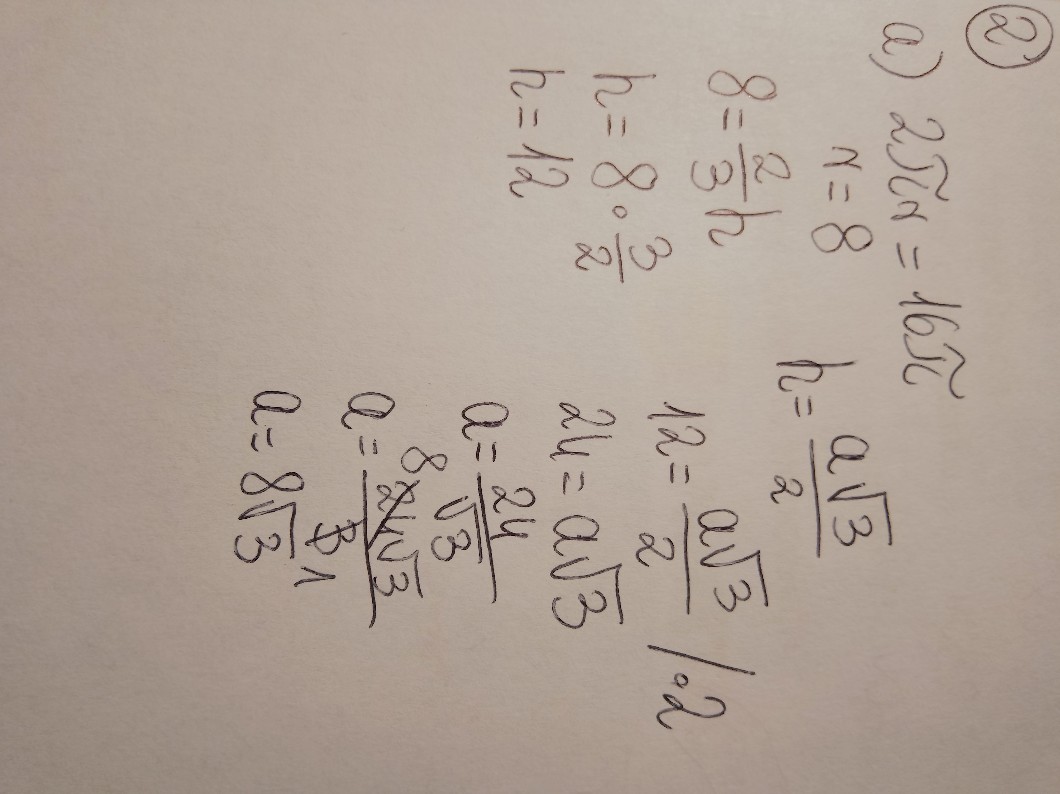 ②
a) 2πr = 16π
r = 8
8 = 2/3 h
h = 8 · 3/2
h = 12
h = a√3/2
12 = a√3/2 /·2
24 = a√3
a = 24/√3
a = 8 24√3/3 1
a = 8√3